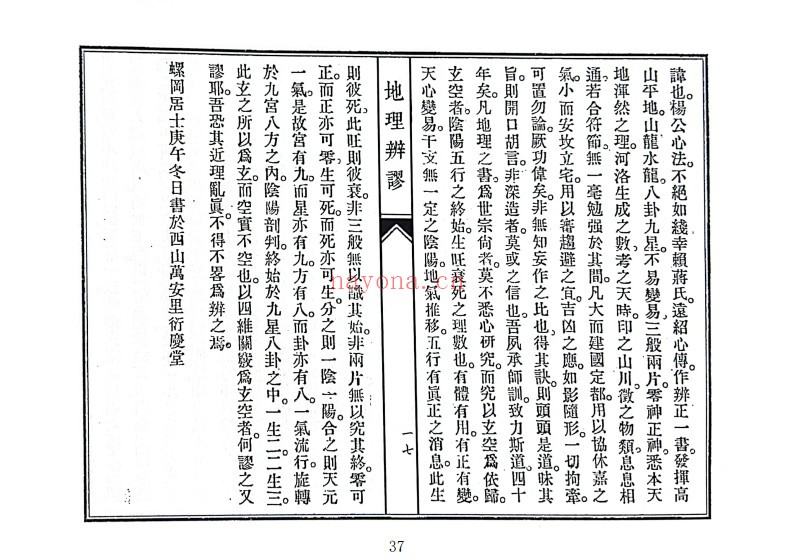 諱也。楊公心法。不絕如綫。幸賴蔣氏遠紹心傳。作辨正一書。發揮高
山平地。山龍水龍。八卦九星。不易變易。三般兩片。零神正神。悉本天
地渾然之理。河洛生成之數。考之天時。印之山川。徵之物類。息息相
通。若合符節。無一毫勉强於其間。凡大而建國定都。用以協休嘉之
氣。小而安坟立宅。用以審趨避之宜。吉凶之應。如影隨形。一切拘牽。
可置勿論。厥功偉矣。非無知妄作之比也。得其訣。則頭頭是道。味其
旨。則開口胡言。非深造者。莫或之信也。吾夙承師訓。致力斯道。四十
年矣。凡地理之書。爲世宗尙者。莫不悉心研究。而究以玄空爲依歸。
玄空者。陰陽五行之終始。生旺衰死之理數也。有體有用。有正有變。
天心變易。干支無一定之陰陽。地氣推移。五行有眞正之消息。此生
地理辨謬
一七
則彼死。此旺則彼衰。非三般無以識其始。非兩片無以究其終。零可
正而正亦可零。生可死而死亦可生。分之則一陰一陽。合之則天元
一氣。是故宮有九而星亦有九。方有八而卦亦有八。一氣流行。旋轉
於九宮八方之內。陰陽剖判。終始於九星八卦之中。一生二。二生三。
此玄之所以爲玄。而空實不空也。以四維關竅爲玄空者。何謬之又
謬耶。吾恐其近理亂眞。不得不畧爲辨之焉。
螺岡居士庚午冬日書於西山萬安里衍慶堂
nayona.cn
37